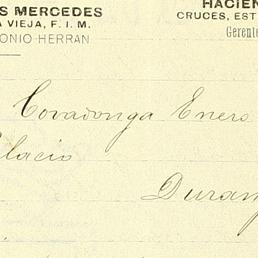 S MERCEDES
A VIEJA, F. I. M.
ONIO HERRAN
HACIEN
CRUCES, EST
Gerente
Covadonga Enero
lacio
Duran